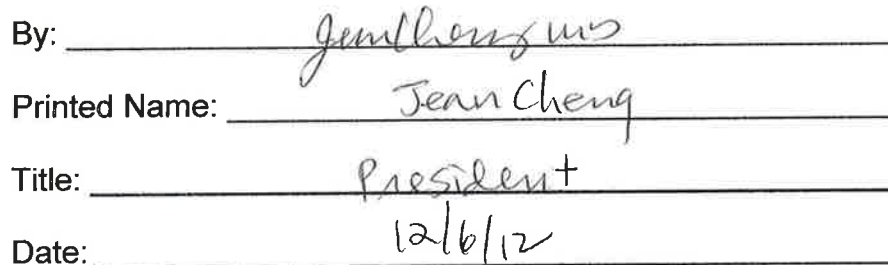 By: Jean Cheng MD
Printed Name: Jean Cheng
Title: President
Date: 12/6/12